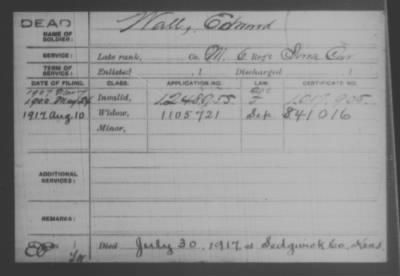 DEAD
NAME OF SOLDIER: Wall, Edmund
SERVICE: Late rank, Co. M, 6 Reg't Iowa Cav
TERM OF SERVICE: Enlisted , 1 Discharged , 1
DATE OF FILING. CLASS. APPLICATION NO. LAW. CERTIFICATE NO.
1900 Invalid, 1248055. 1017905.
1917 Aug 10 Widow, 1105721 Sep 841016
Minor,
ADDITIONAL SERVICES:
REMARKS:
Died July 30, 1917, at Sedgwick Co, Kans.